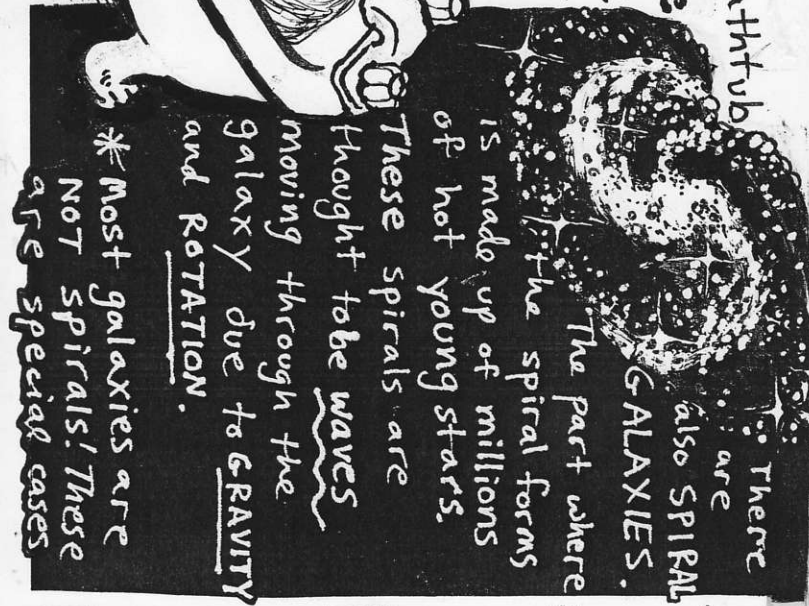 athtub
There
are
also SPIRAL
GALAXIES.
The part where
the spiral forms
is made up of millions
of hot young stars.
These spirals are
thought to be waves
moving through the
galaxy due to GRAVITY
and ROTATION.
* Most galaxies are
NOT spirals! These
are special cases